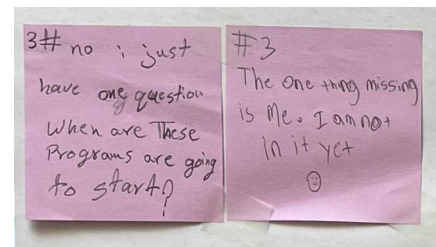 3# no i just
have one question
When are These
Programs are going
to start?
#3
The one thing missing
is Me. I am not
in it yet